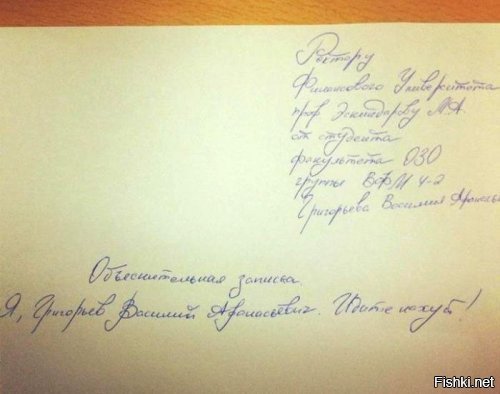 Ректору
Финансового Университета
проф Эскиндарову М.А.
от студента
факультета ОЗО
группы ВФМ 4-2
Григорьева Василия Афанасье
Объяснительная записка.
Я, Григорьев Василий Афанасьевич. Идите нахуй!
Fishki.net